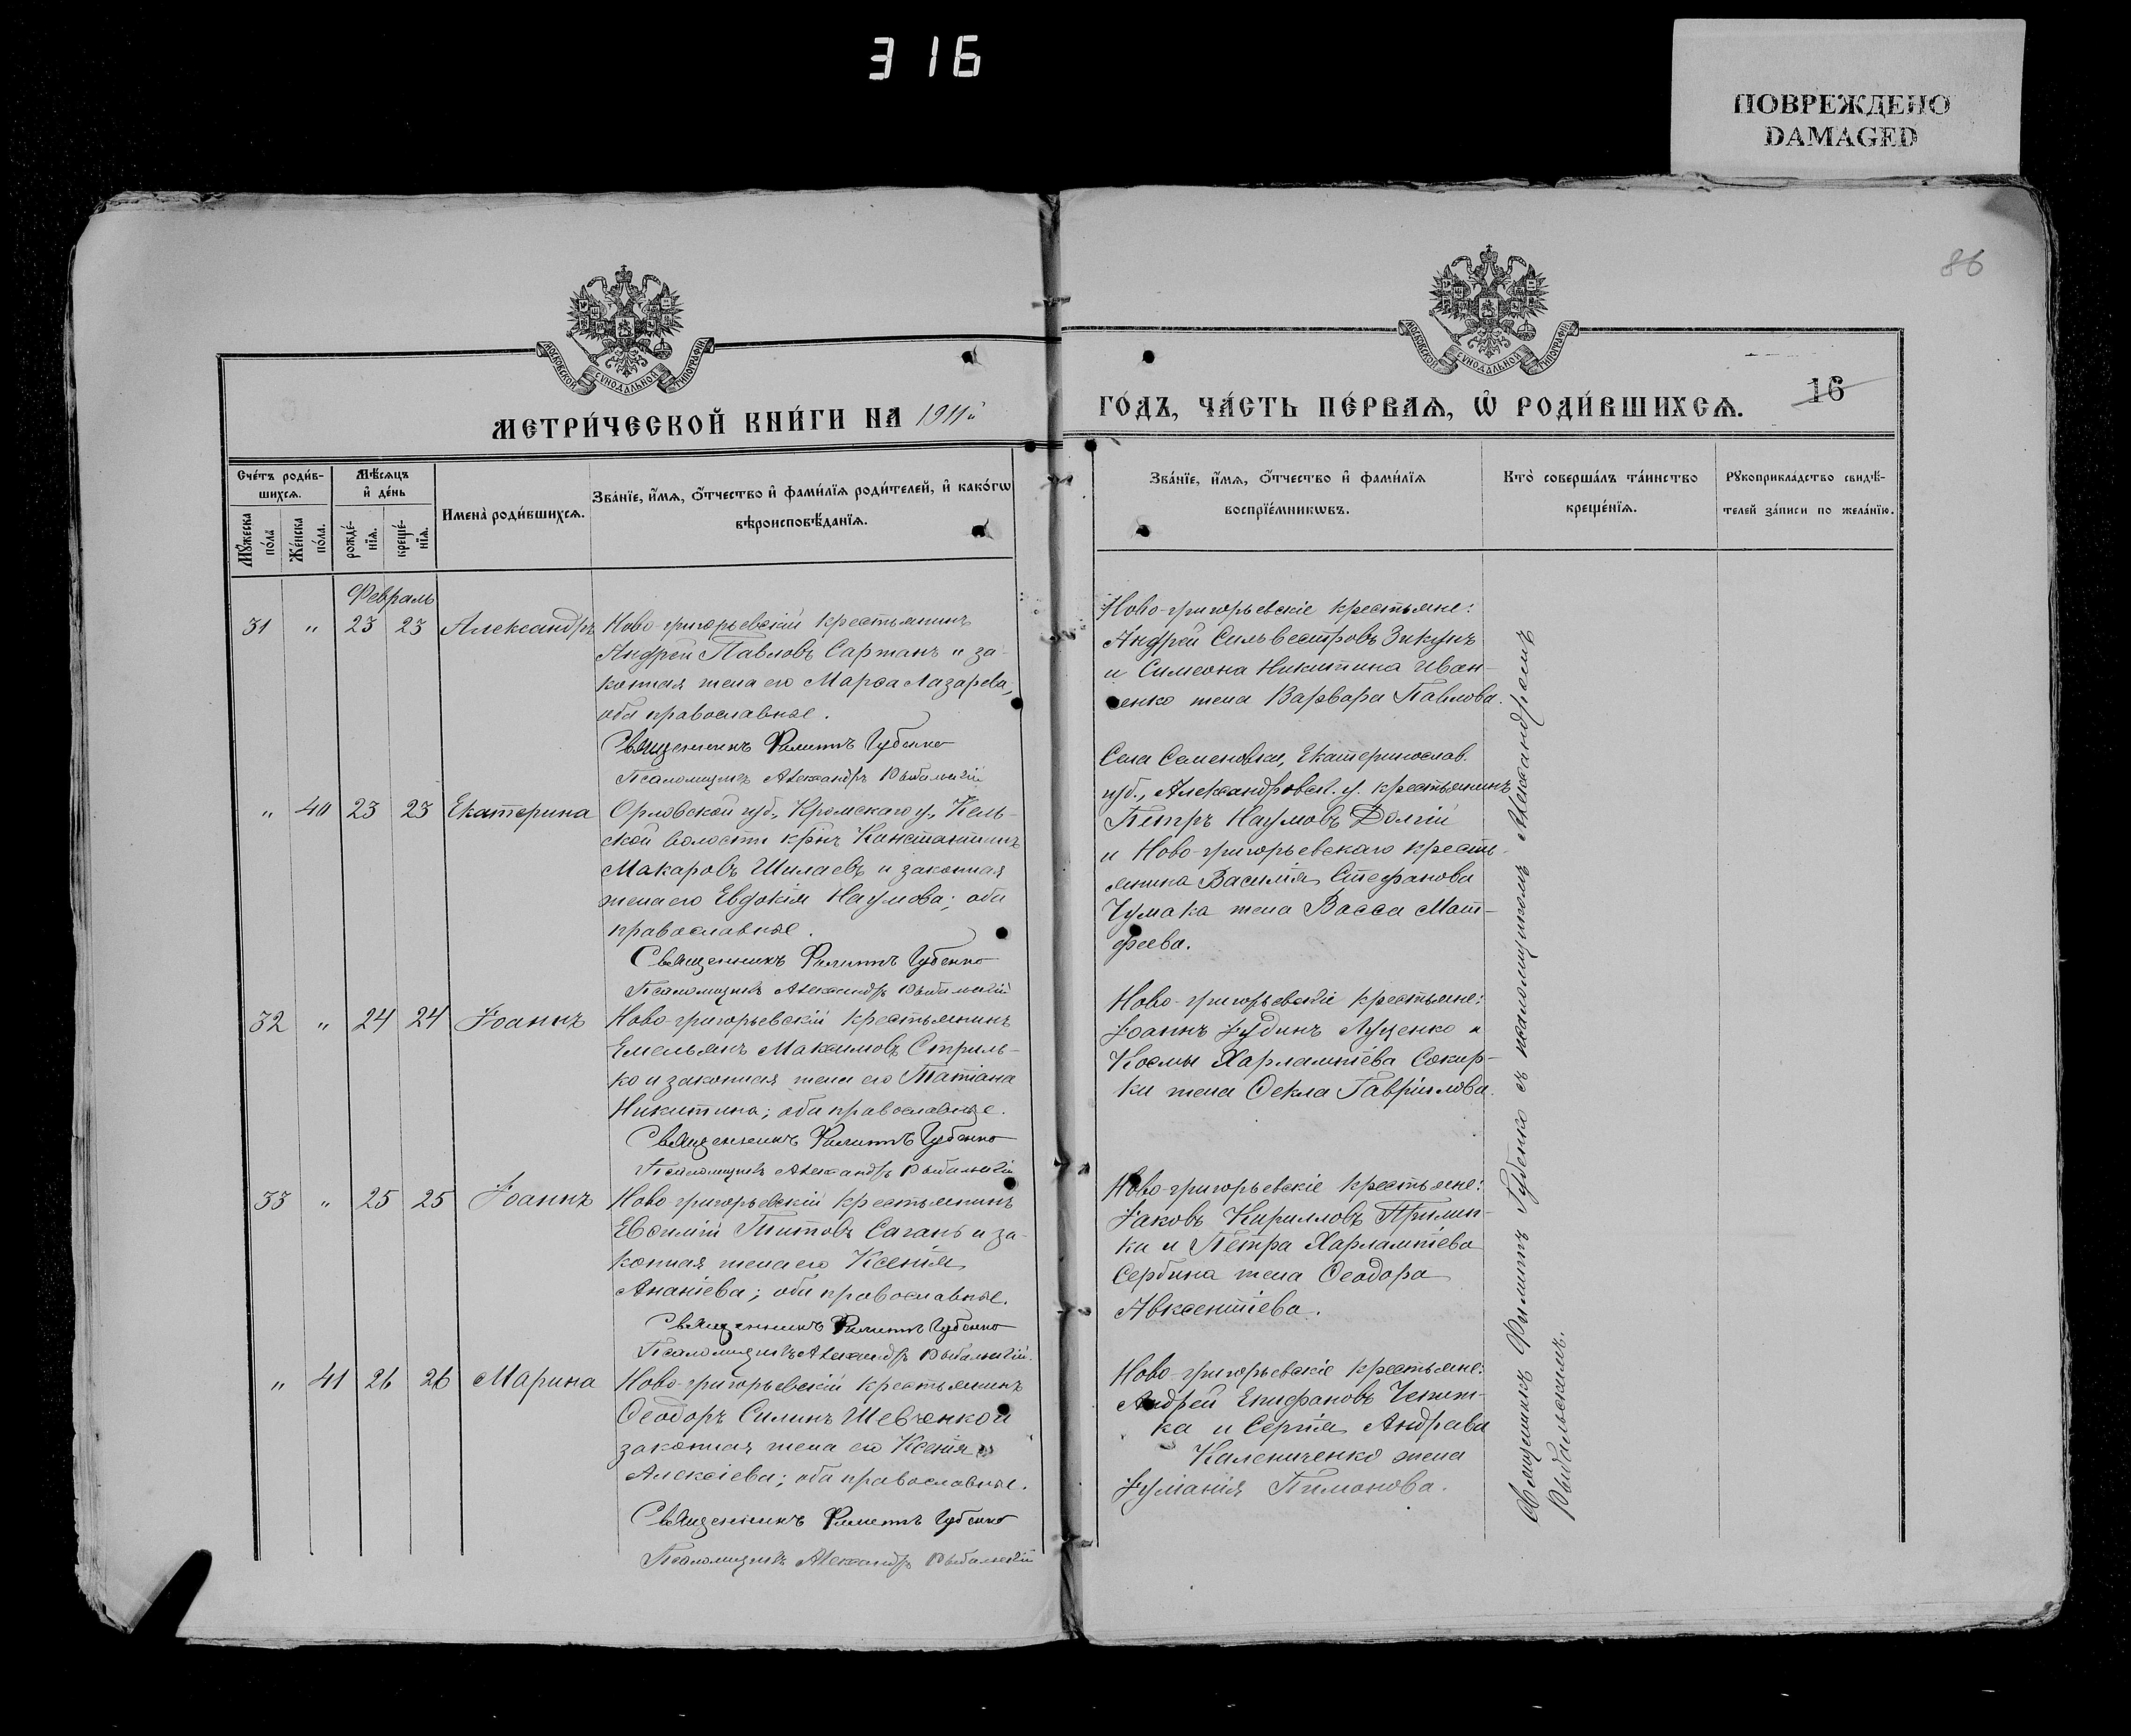 316
ПОВРЕЖДЕНО
DAMAGED
86
МОСКОВСКОЙ СѴНОДАЛЬНОЙ ТИПОГРАФІИ
МОСКОВСКОЙ СѴНОДАЛЬНОЙ ТИПОГРАФІИ
МЕТРИ́ЧЕСКОЙ КНИ́ГИ НА 1911й
ГО́ДЪ, ЧА́СТЬ ПЕ́РВАѦ, Ѡ҆ РОДИ́ВШИХСѦ.
16
Сче́тъ роди́в-
шихсѧ.
Мꙋ́жеска
по́ла
Же́нска
по́ла.
Мѣ́сѧцъ
и҆ де́нь
рожде́-
нїѧ.
креще́-
нїѧ.
Имена̀ роди́вшихсѧ.
Зва́нїе, и҆́мѧ, ѻ҆́тчество и҆ фами́лїѧ роди́телей, и҆ како́гѡ
вѣроисповѣ́данїѧ.
Зва́нїе, и҆́мѧ, ѻ҆́тчество и҆ фами́лїѧ
воспрїе́мникѡвъ.
Кто̀ соверша́лъ та́инство
креще́нїѧ.
Рꙋкоприкла́дство свидѣ́-
телей за́писи по жела́нїю.
Февраль
31 " 23 23 Александръ
Ново-григорьевскій крестьянинъ
Андрей Павловъ Сартанъ и за-
конная жена его Марѳа Лазарева,
оба православные.
Священникъ Филиппъ Губенко
Псаломщикъ Александръ Рыбальскій
Ново-григорьевскіе крестьяне:
Андрей Сильвестровъ Зикунъ
и Симеона Никитина Иван-
ченко жена Варвара Павлова.
" 40 23 23 Екатерина
Орловской губ., Кромскаго у., Кель-
ской волости крнъ Константинъ
Макаровъ Шилаевъ и законная
жена его Евдокія Наумова; оба
православные.
Священникъ Филиппъ Губенко
Псаломщикъ Александръ Рыбальскій
Села Семеновки, Екатеринослав.
губ., Александровск. у. крестьянинъ
Петръ Наумовъ Долгій
и Ново-григорьевскаго кресть-
янина Василія Стефанова
Чумака жена Васса Мат-
феева.
32 " 24 24 Іоаннъ
Ново-григорьевскій крестьянинъ
Емельянъ Максимовъ Стриль-
ко и законная жена его Татіана
Никитина; оба православные.
Священникъ Филиппъ Губенко
Псаломщикъ Александръ Рыбальскій
Ново-григорьевскіе крестьяне:
Іоаннъ Іудинъ Луценко и
Космы Харлампіева Сокир-
ки жена Ѳекла Гавріилова.
33 " 25 25 Іоаннъ
Ново григорьевскій крестьянинъ
Евѳимій Титовъ Сагань и за-
конная жена его Ксенія
Ананіева; оба православные.
Священникъ Филиппъ Губенко
Псаломщикъ Александръ Рыбальскій.
Ново-григорьевскіе крестьяне:
Іаковъ Кирилловъ Прилип-
ка и Петра Харлампіева
Сербина жена Ѳеодора
Авксентіева.
" 41 26 26 Марина
Ново-григорьевскій крестьянинъ
Ѳеодоръ Силинъ Шевченко и
законная жена его Ксенія
Алексіева; оба православные.
Священникъ Филиппъ Губенко
Псаломщикъ Александръ Рыбальскій
Ново-григорьевскіе крестьяне:
Андрей Епифановъ Чепит-
ка и Сергія Андреева
Калениченко жена
Іуліанія Пимонова.
Священникъ Филиппъ Губенко съ псаломщикомъ Александромъ
Рыбальскимъ.